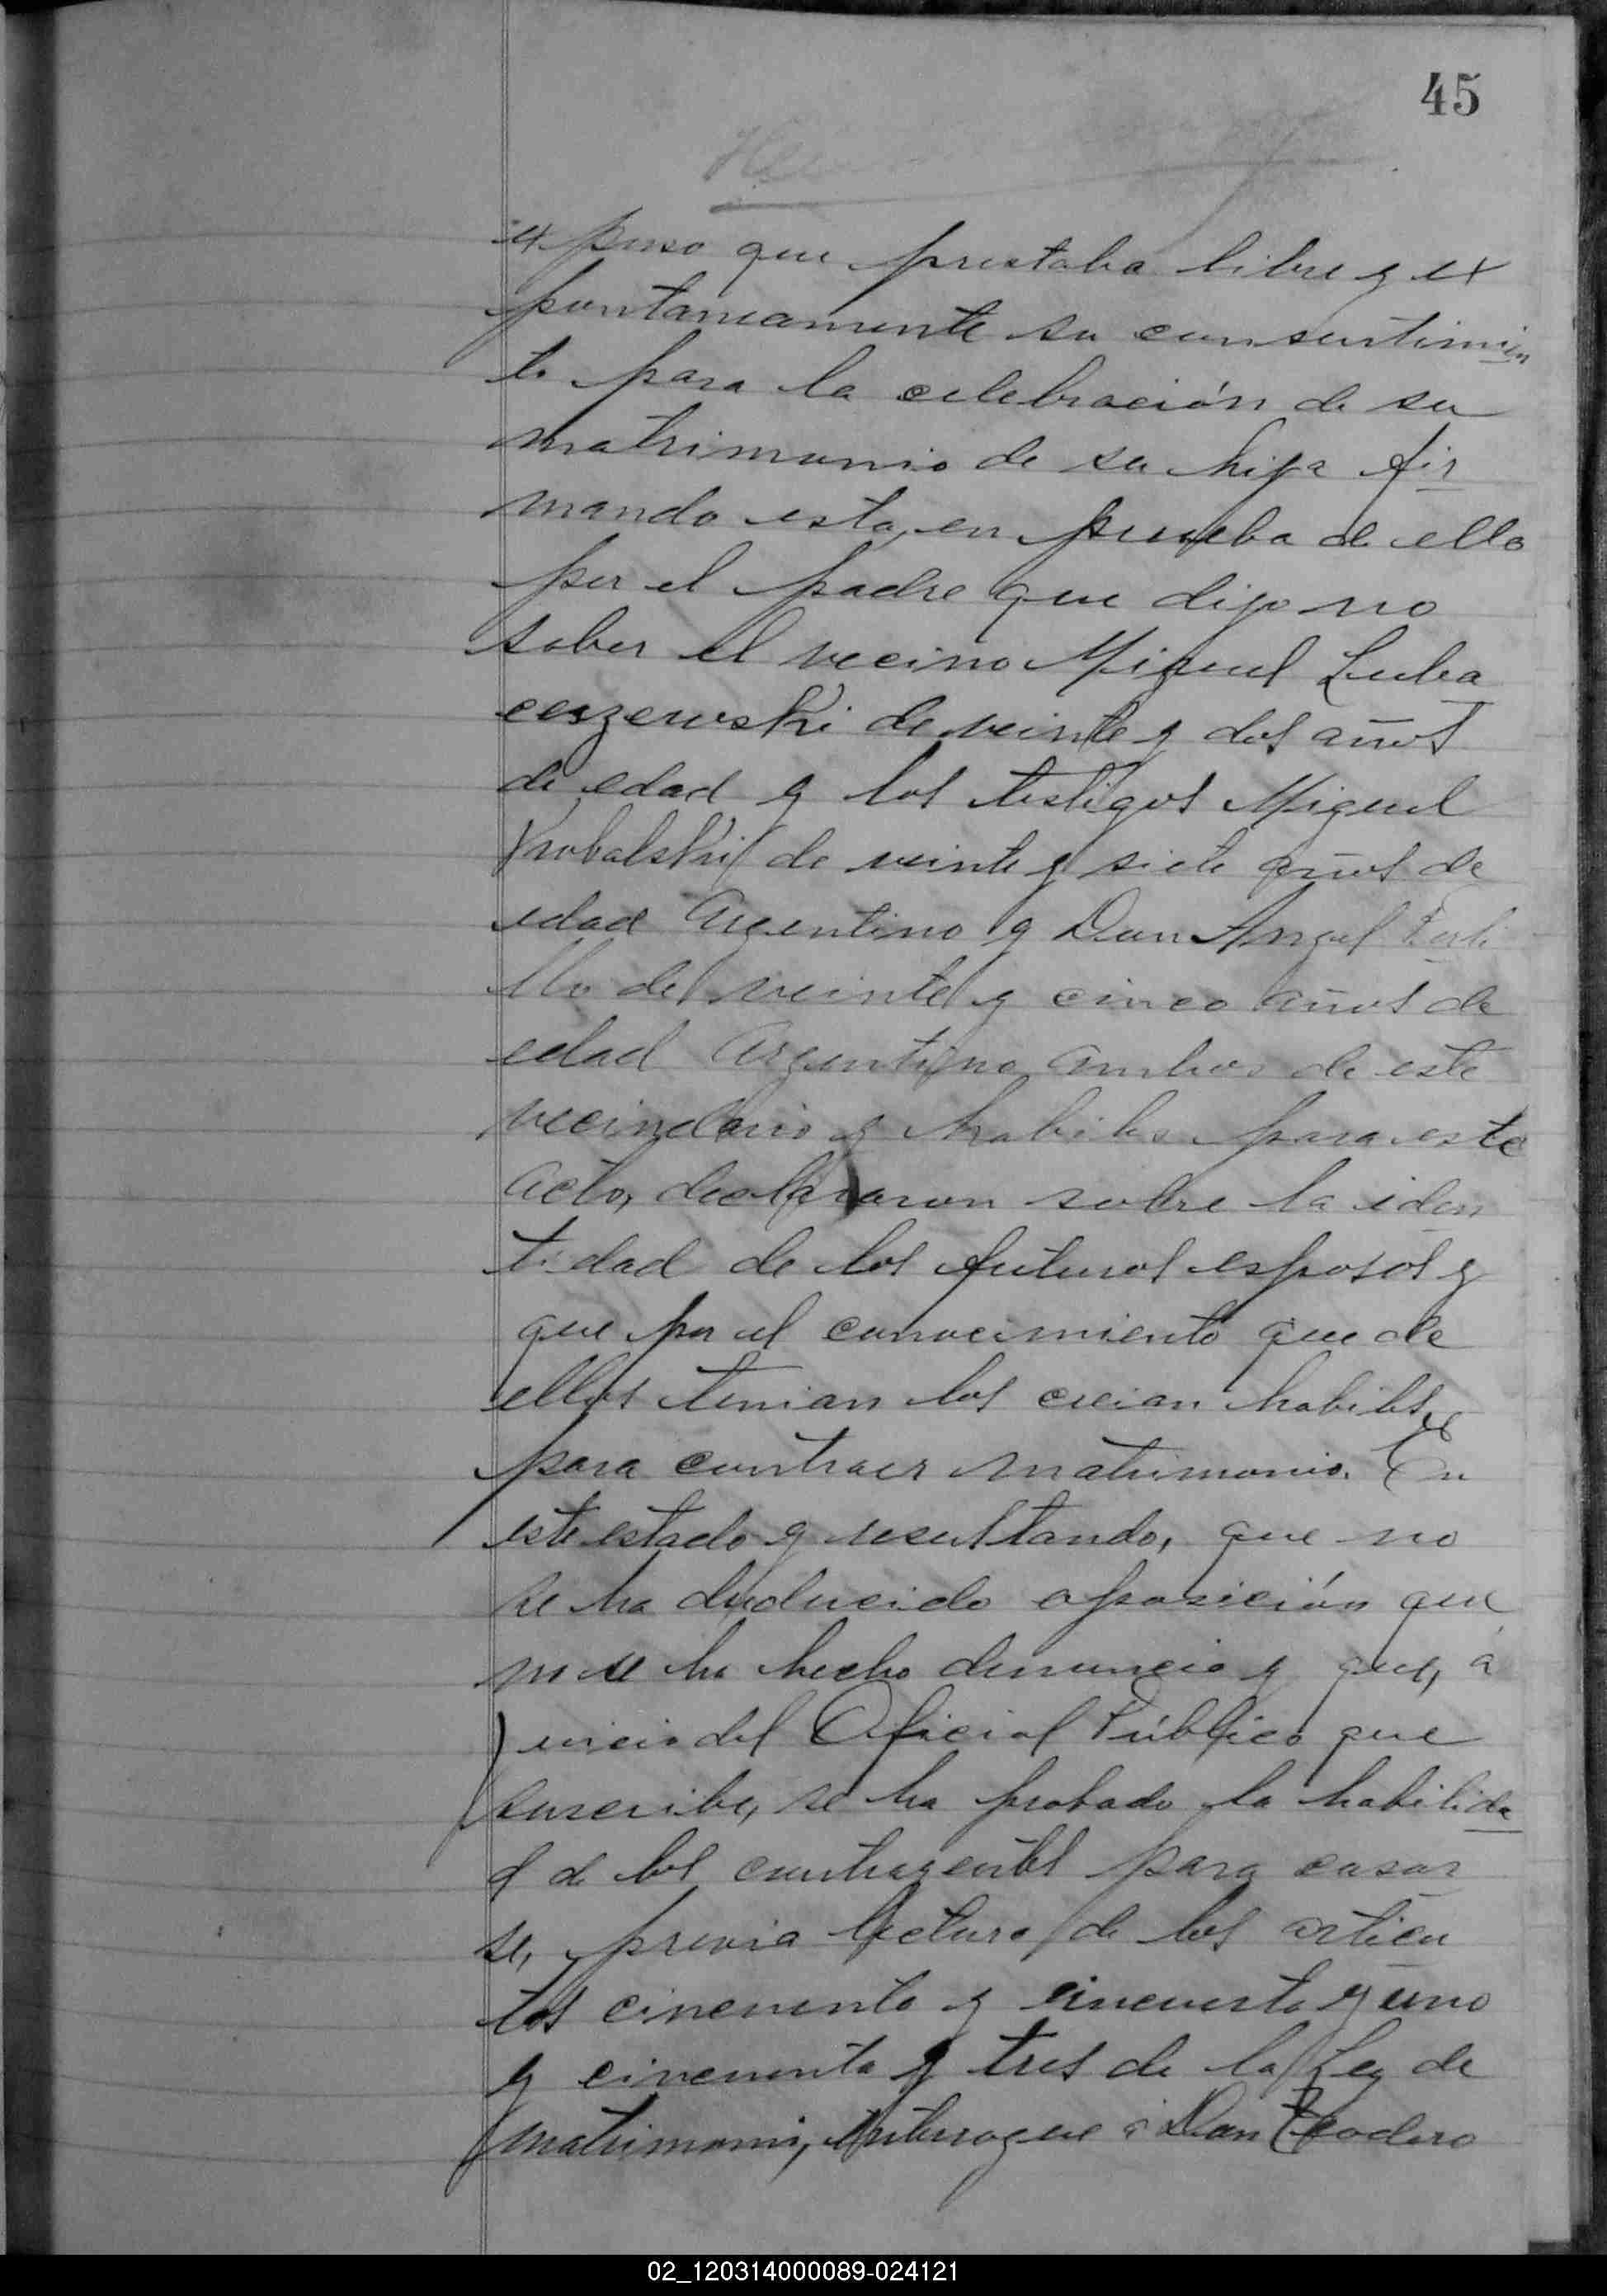 45
expuso que prestaba libre y ex
pontaneamente su consentimien
to para la celebración de su
matrimonio de su hija fir
mando esta, en prueba de ello
por el padre que dijo no
saber el vecino Miguel Luba
czezewski de veinte y dos años
de edad y los testigos Miguel
de veinte y siete años de
edad Argentino y Don Angel Porti
llo de veinte y cinco años de
edad Argentino ambos de este
vecindario y habiles para este
acto, declararon sobre la iden
tidad de los futuros esposos y
que por el conocimiento que de
ellos tenian los creian habiles
para contraer matrimonio. En
este estado y resultando, que no
se ha deducido oposición que
no se ha hecho denuncia y que, á
juicio del Oficial Público que
suscribe, se ha probado la habilida
d de los contrayentes para casar
se, previa lectura de los articu
los cincuenta y cincuenta y uno
y cincuenta y tres de la Ley de
matrimonio, interrogue á Don Teodoro
02_120314000089-024121